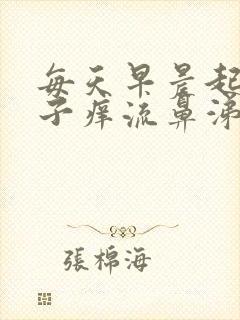 每天早晨起
子痒流鼻涕
張棉海